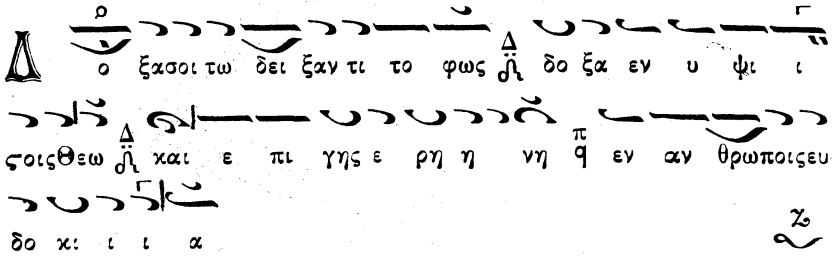 Δ ο ξασοι τω δει ξαν τι το φως Δ δο ξα εν υ ψι ι
ςοις Θεω Δ και ε πι γης ε ρη η νη π q εν αν θρωποις ευ
δο κι ι ι α